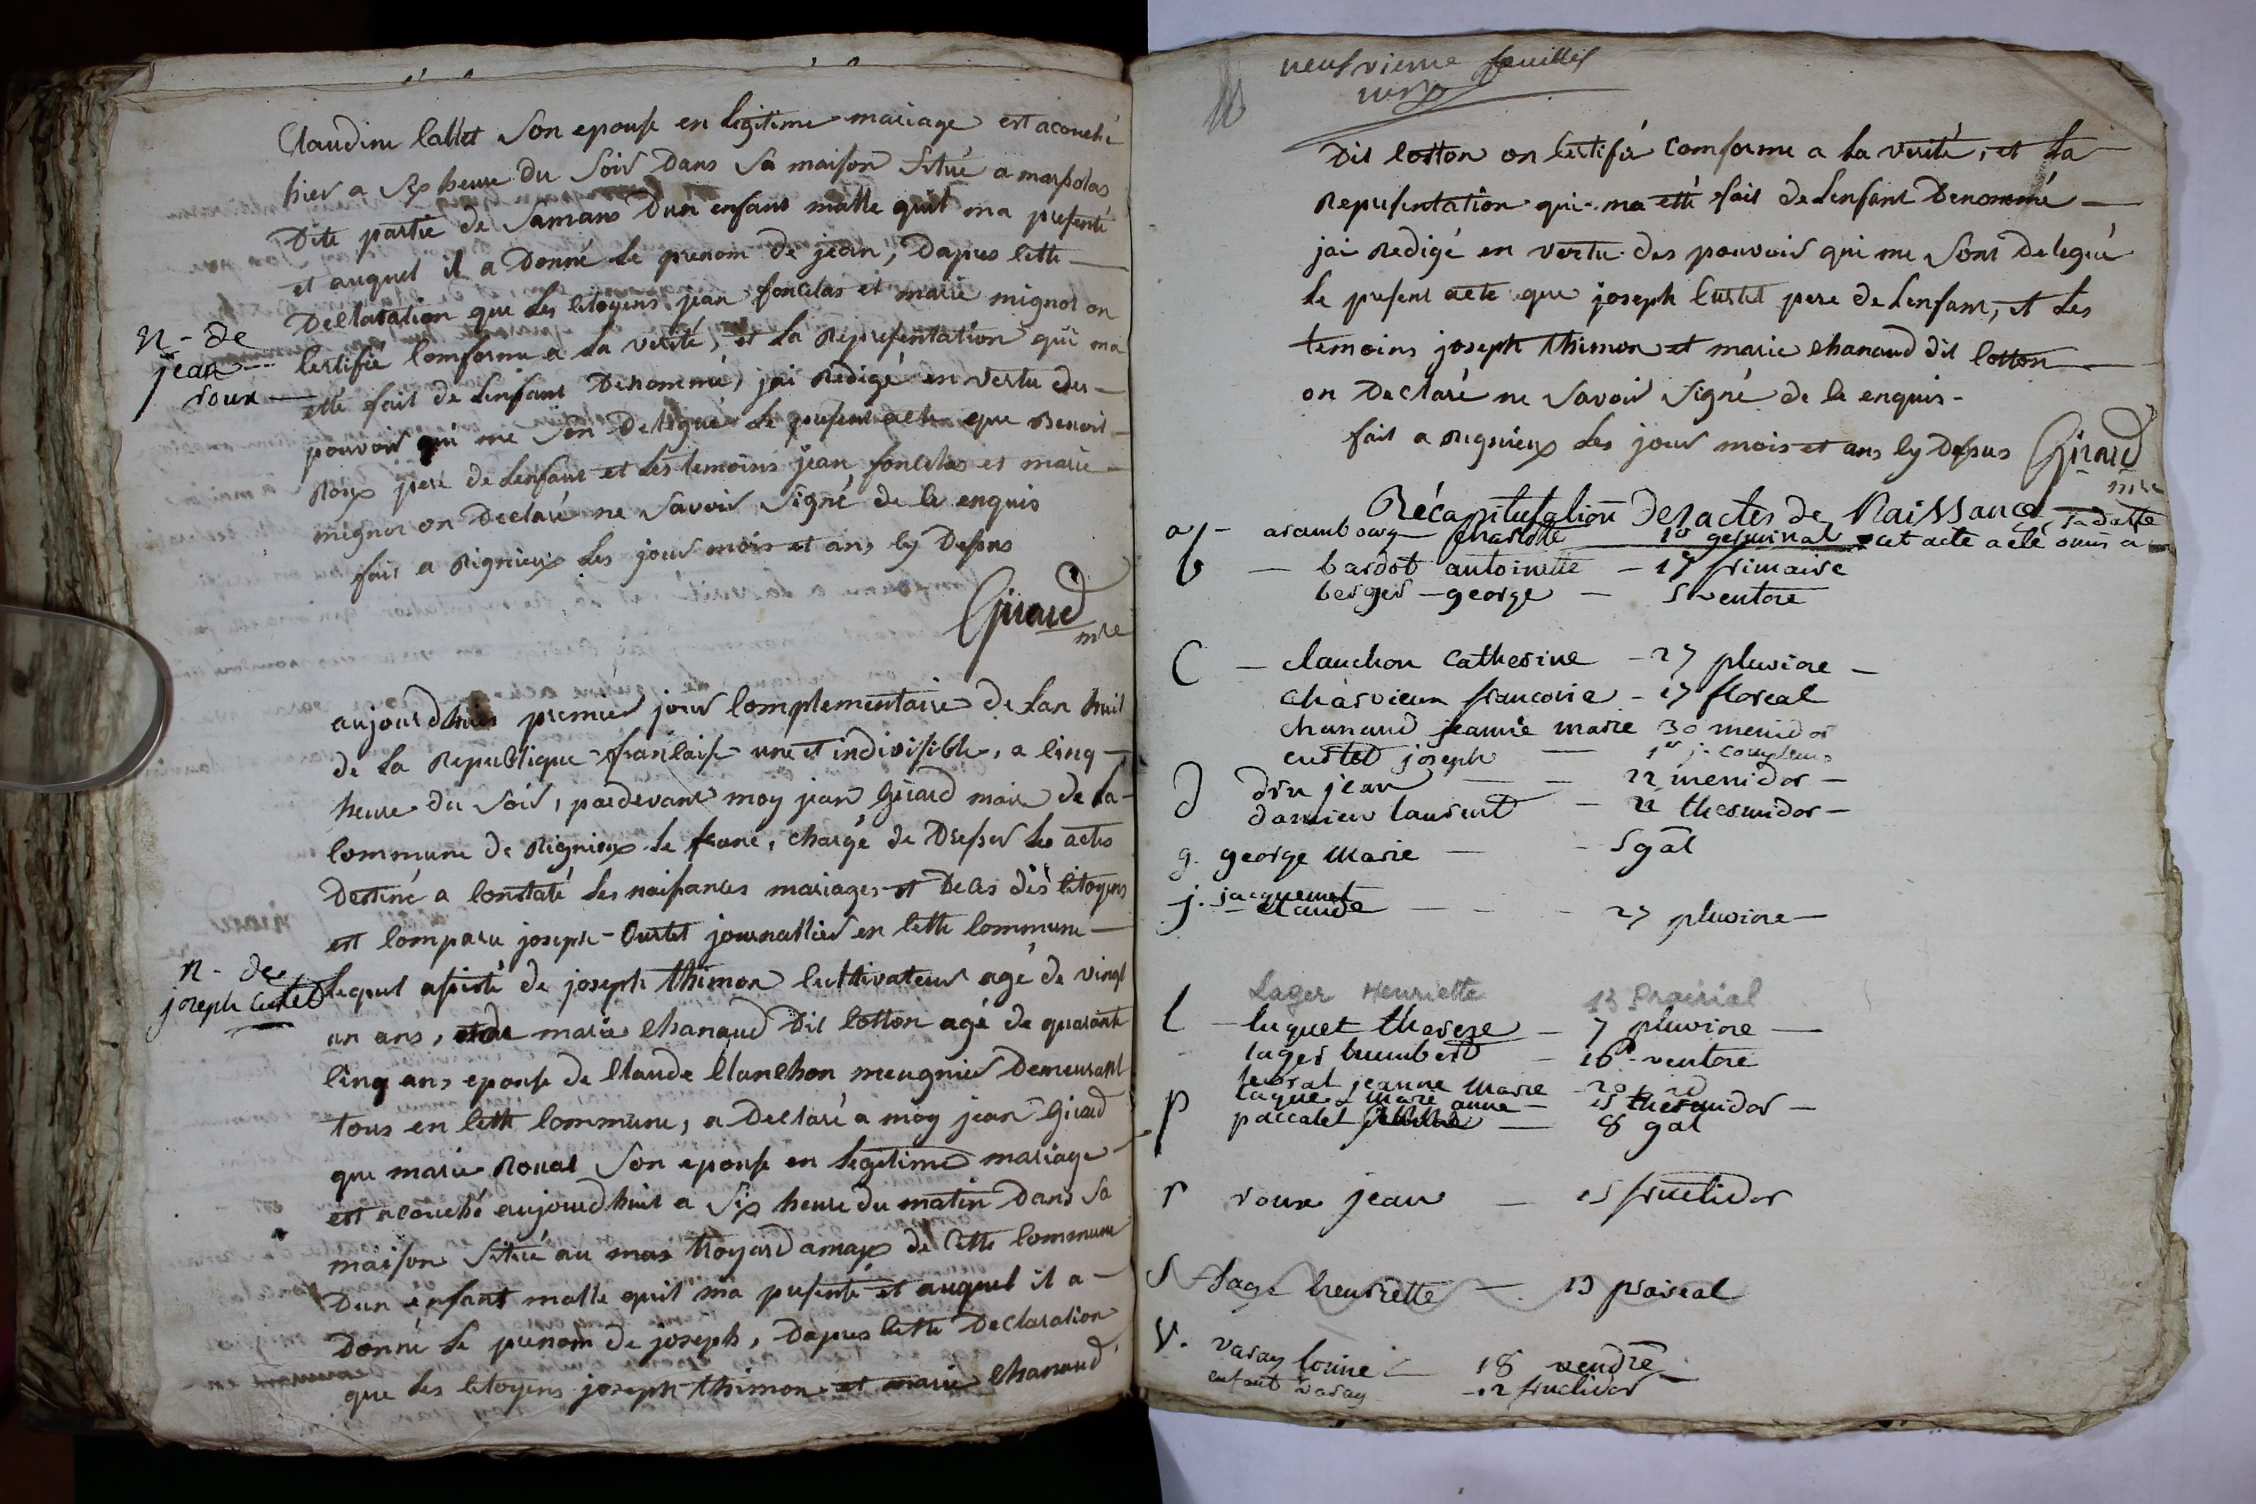 Claudine lallet Son epouse en legitime mariage est acouché
hier a Six heure du Soir Dans Sa maison Situé a marpolas
Dite partie de Samans Dun enfant malle quil ma presenté
et auquel il a Donné Le prenom de jean, Dapres cette
Declaration que Les citoyens jean foncelas et marie mignot on
Certifié Conforme a La verité, et La Representation qui ma
n - de
jean
roux
etté fait de Lenfant Denommé, jai Redigé en vertu des
pouvoir qui me Son Delegué Le present acte que Benoit
Roux pere de Lenfant et Les temoins jean foncelas et marie
mignot on Declaré ne Savoir Signé de ce enquis
fait a Rignieux Les jour mois et ans cy Dessus
Girard
mre
aujourdhuis premier jour Complementaire de Lan huit
de La Republique francaise une et indivisible, a cinq
heure du Soir, pardevant moy jean Girard maire de La
Commune de Rignieux Le franc, chargé de Dresser Les actes
Destiné a Constaté Les naissances mariages et Deces des Citoyens
est Comparu joseph Curtet journallier en cette Commune
n - de
joseph curtet
Lequel assisté de joseph thimon Cultivateur agé de vingt
un ans, et de marie Chanaud Dit Cotton agé de quarante
Cinq ans epouse de Claude Clanchon meugnier Demeurant
tous en cette Commune, a Declaré a moy jean Girard
que marie Rouat Son epouse en legitime mariage
est acouché aujourdhuit a Six heure du matin Dans Sa
maison Situé au mas troyard amax de Cette Commune
Dun enfant malle quil ma presenté et auquel il a
Donné Le prenom de joseph, Dapres cette Declaration
que Les Citoyens joseph thimon et marie Chanaud
neufvieme feuillet
verso
Dit Cotton on Certifié Comforme a La verité, et La
Representation qui ma etté fait de Lenfant Denommé
jai Redigé en vertu des pouvoir qui me Sont Delegué
Le present acte que joseph Curtet pere de Lenfant, et Les
temoins joseph thimon et marie Chanaud dit Cotton
on Declaré ne Savoir Signé de ce enquis
fait a Rignieux Les jour mois et ans cy Dessus Girard
mre
Récapitulation Des actes de Naissance
a - arambourg charlotte 10 germinal cet acte a été omis a sa datte
b - bardot antoinette - 17 frimaire
berger - george - 5 ventore
C - clanchon catherine - 27 pluviore -
charvieux francoise - 17 floreal
chanaud jeanne marie 30 messidor
curtet joseph - 1er j. complem.
d dru jean - 22 messidor -
damien laurent - 22 thermidor -
g. george Marie - - 5 gal
j. jacquemet
claude - - - 27 pluviore -
Lager Henriette 13 Prairial
l - luquet therese - 7 pluviore -
lager humbert - 16 ventore
jeanne marie - 20 id
marie anne - 15 thermidor -
p paccalet - 8 gal
r roux jean - 15 fructidor
S - Sage henriette - 13 praireal
V. varay - 18 vendre
enfant varay - 12 fructidor